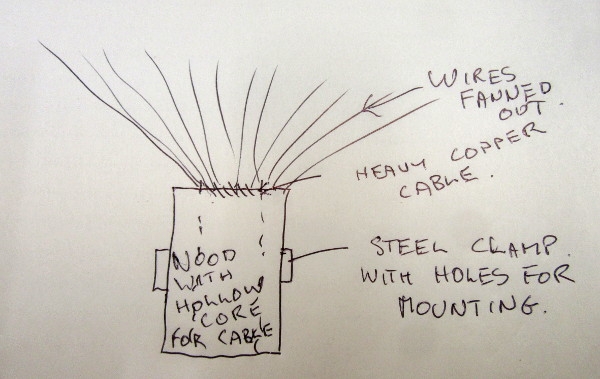 WIRES
FANNED
OUT.
HEAVY COPPER
CABLE.
STEEL CLAMP.
WITH HOLES FOR
MOUNTING.
WOOD
WITH
HOLLOW
CORE
FOR CABLE